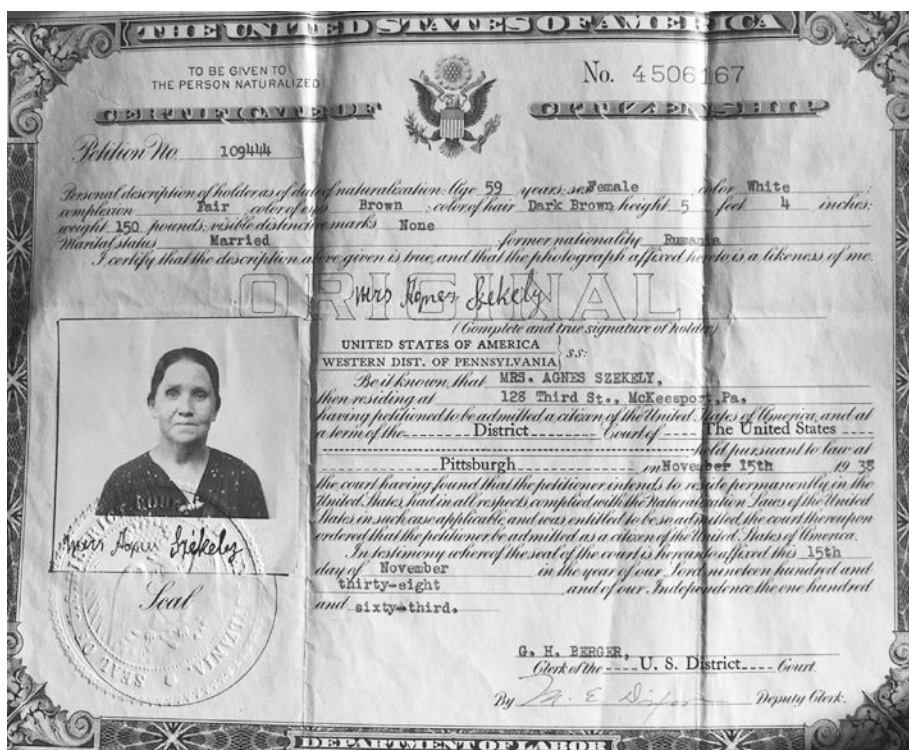 THE UNITED STATES OF AMERICA
TO BE GIVEN TO
THE PERSON NATURALIZED
No. 4506167
CERTIFICATE OF CITIZENSHIP
Petition No 109444
Personal description of holder as of date of naturalization: Age 59 years; sex Female color White
complexion Fair color of eyes Brown color of hair Dark Brown height 5 feet 4 inches;
weight 150 pounds; visible distinctive marks None
Marital status Married former nationality Rumania
I certify that the description above given is true, and that the photograph affixed hereto is a likeness of me.
ORIGINAL
Mrs Agnes Székely
(Complete and true signature of holder)
UNITED STATES OF AMERICA
WESTERN DIST. OF PENNSYLVANIA } s.s:
Be it known that MRS. AGNES SZEKELY,
then residing at 128 Third St., McKeesport, Pa.
having petitioned to be admitted a citizen of the United States of America, and at
a term of the District Court of The United States
held pursuant to law at
Pittsburgh on November 15th 1938
the court having found that the petitioner intends to reside permanently in the
United States, had in all respects complied with the Naturalization Laws of the United
States in such case applicable, and was entitled to be so admitted, the court thereupon
ordered that the petitioner be admitted as a citizen of the United States of America.
In testimony whereof the seal of the court is hereunto affixed this 15th
day of November in the year of our Lord nineteen hundred and
thirty-eight and of our Independence the one hundred
and sixty-third.
Mrs Agnes Székely
Seal
G. H. BERGER,
Clerk of the U. S. District Court.
By M. E. Deputy Clerk.
DEPARTMENT OF LABOR